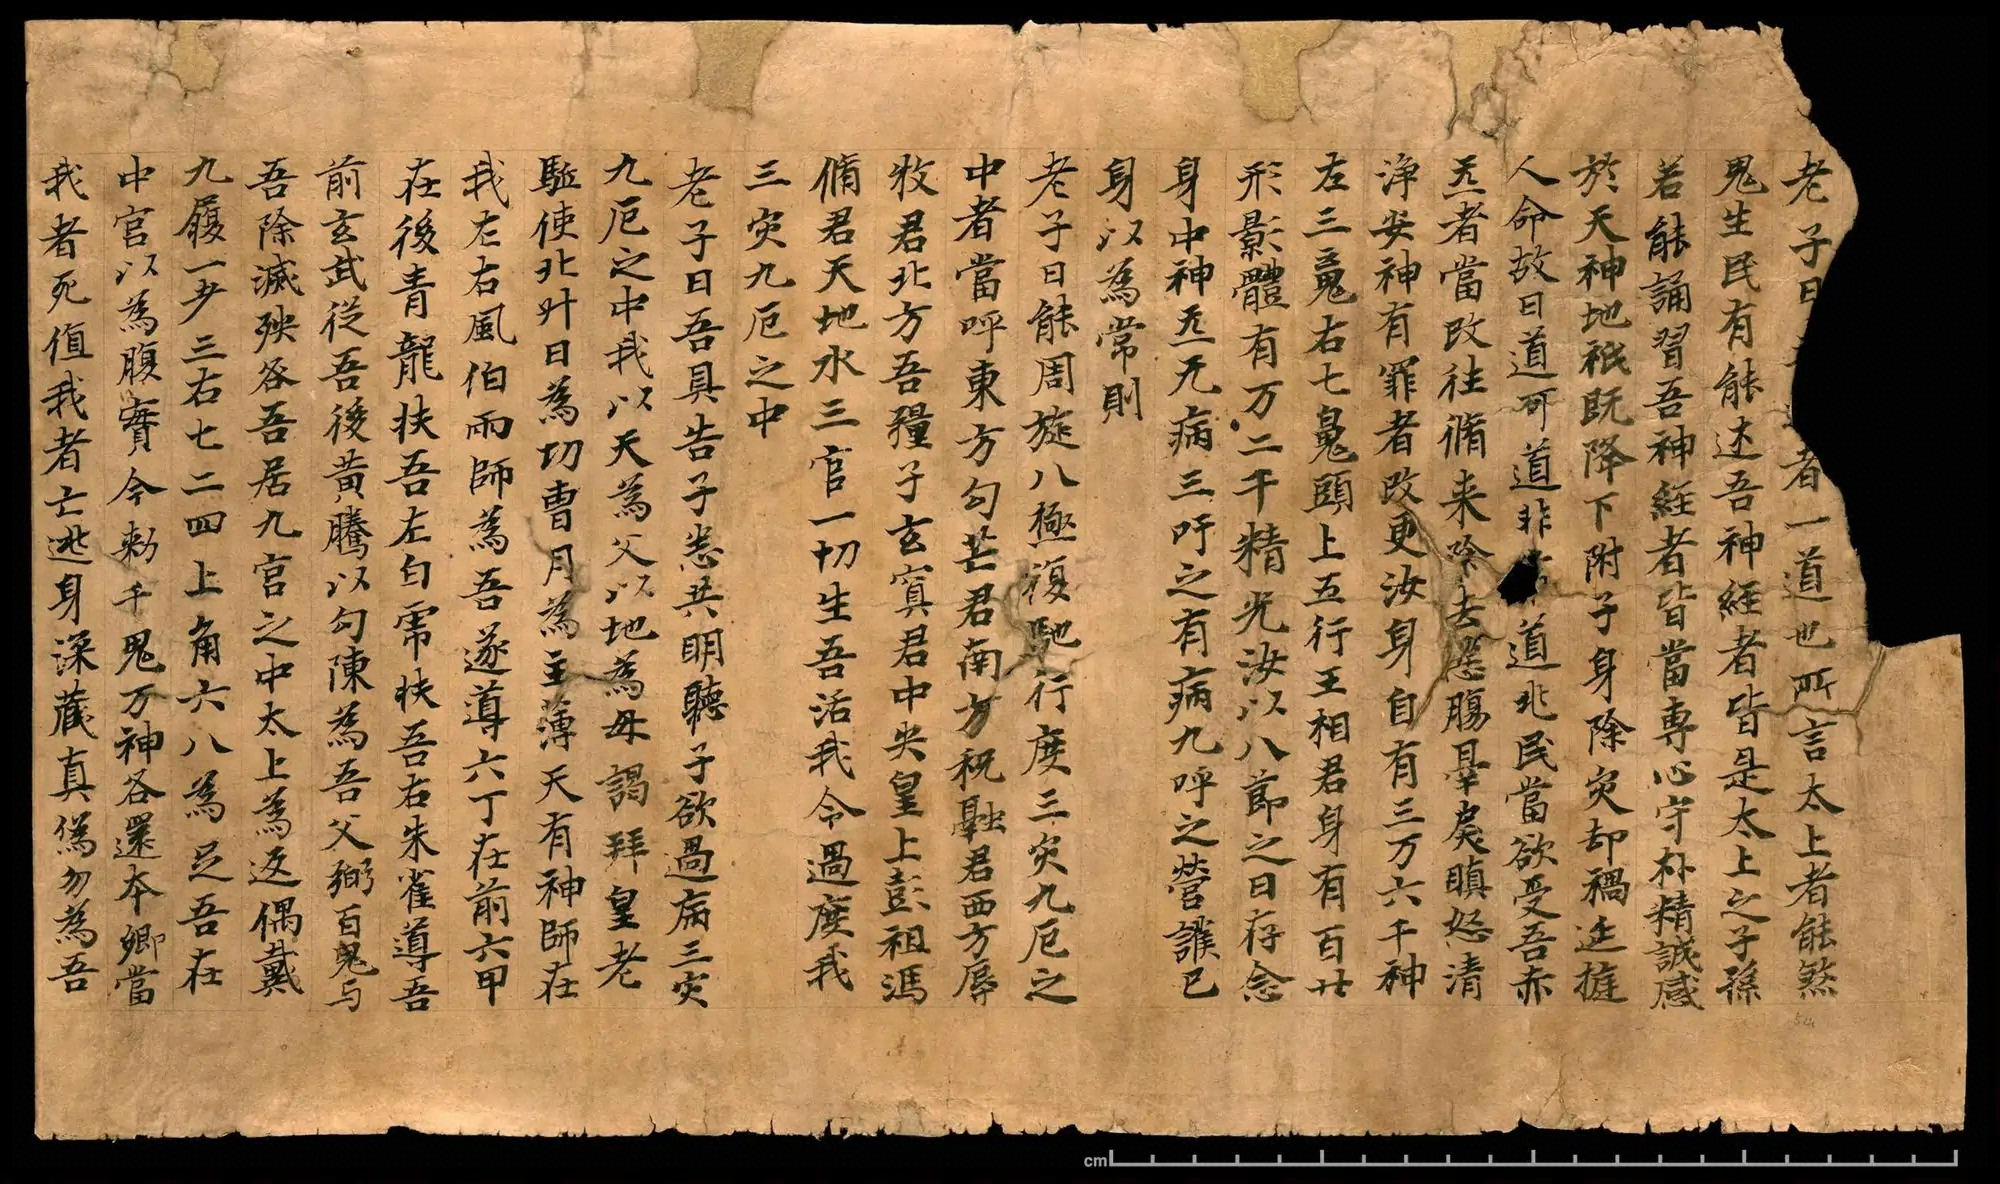 老子曰者一道也所言太上者能煞
鬼生民有能述吾神經者皆是太上之子孫
若能誦習吾神經者皆當專心守朴精誠感
於天神地祇既降下附子身除灾却禍延
人命故曰道可道非道兆民當欲受吾赤
炁者當改往脩来除去悪腸瞋怒清
淨安神有罪者改更汝身自有三万六千神
左三䰟右七鬼頭上五行王相君身有百廿
形影體有万二千精光汝以八節之日存念
身中神炁无病三呼之有病九呼之營護己
身以為常則
老子曰能周旋八極復馳行度三灾九厄之
中者當呼東方勾芒君南方祝融君西方辱
收君北方吾糧子玄寘君中央皇上彭祖馮
脩君天地水三官一切生吾活我令過度我
三灾九厄之中
老子曰吾具告子悉共明聽子欲過病三灾
九厄之中我以天為父以地為母謁拜皇老
駈使北叶日為切曹月為主薄天有神師在
我左右風伯雨師為吾遂導六丁在前六甲
在後青龍扶吾左白帍扶吾右朱雀導吾
前玄武從吾後黃騰以勾陳為吾父㺷百鬼与
吾除滅殃咎吾居九宮之中太上為返偶戴
九履一尹三右七二四上角六八為足吾在
中宮以為腹實今勑千鬼万神各還本鄉當
我者死值我者亡逃身深藏真偽勿為吾